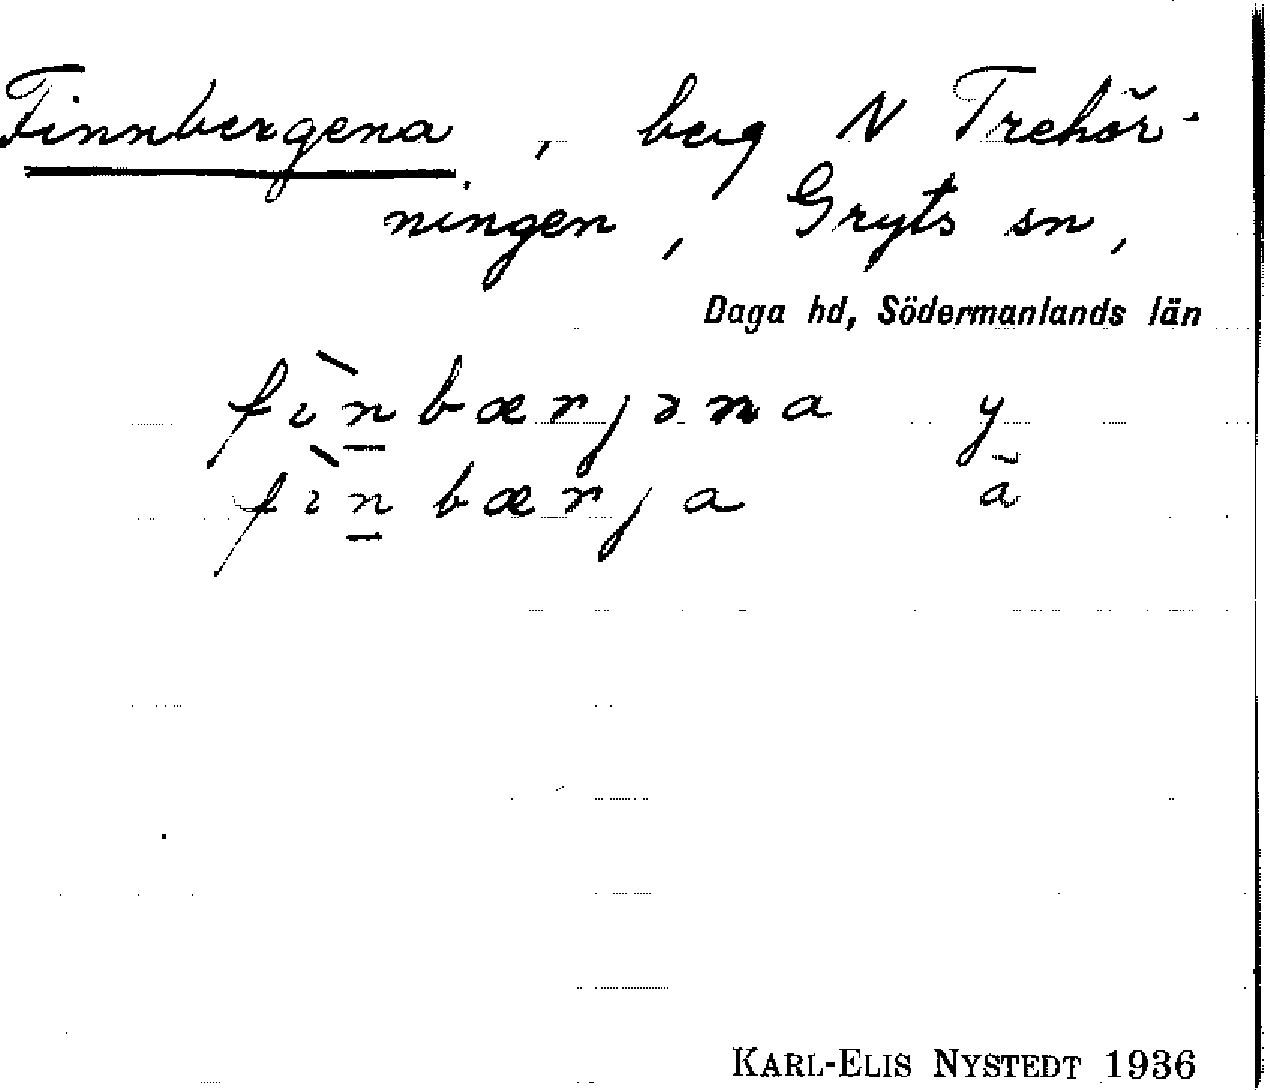 Finnbergena, berg N Trehör-
ningen, Gryts sn,
Daga hd, Södermanlands län
fìn̲bærjəna y
fìn̲bærja ä
KARL-ELIS NYSTEDT 1936